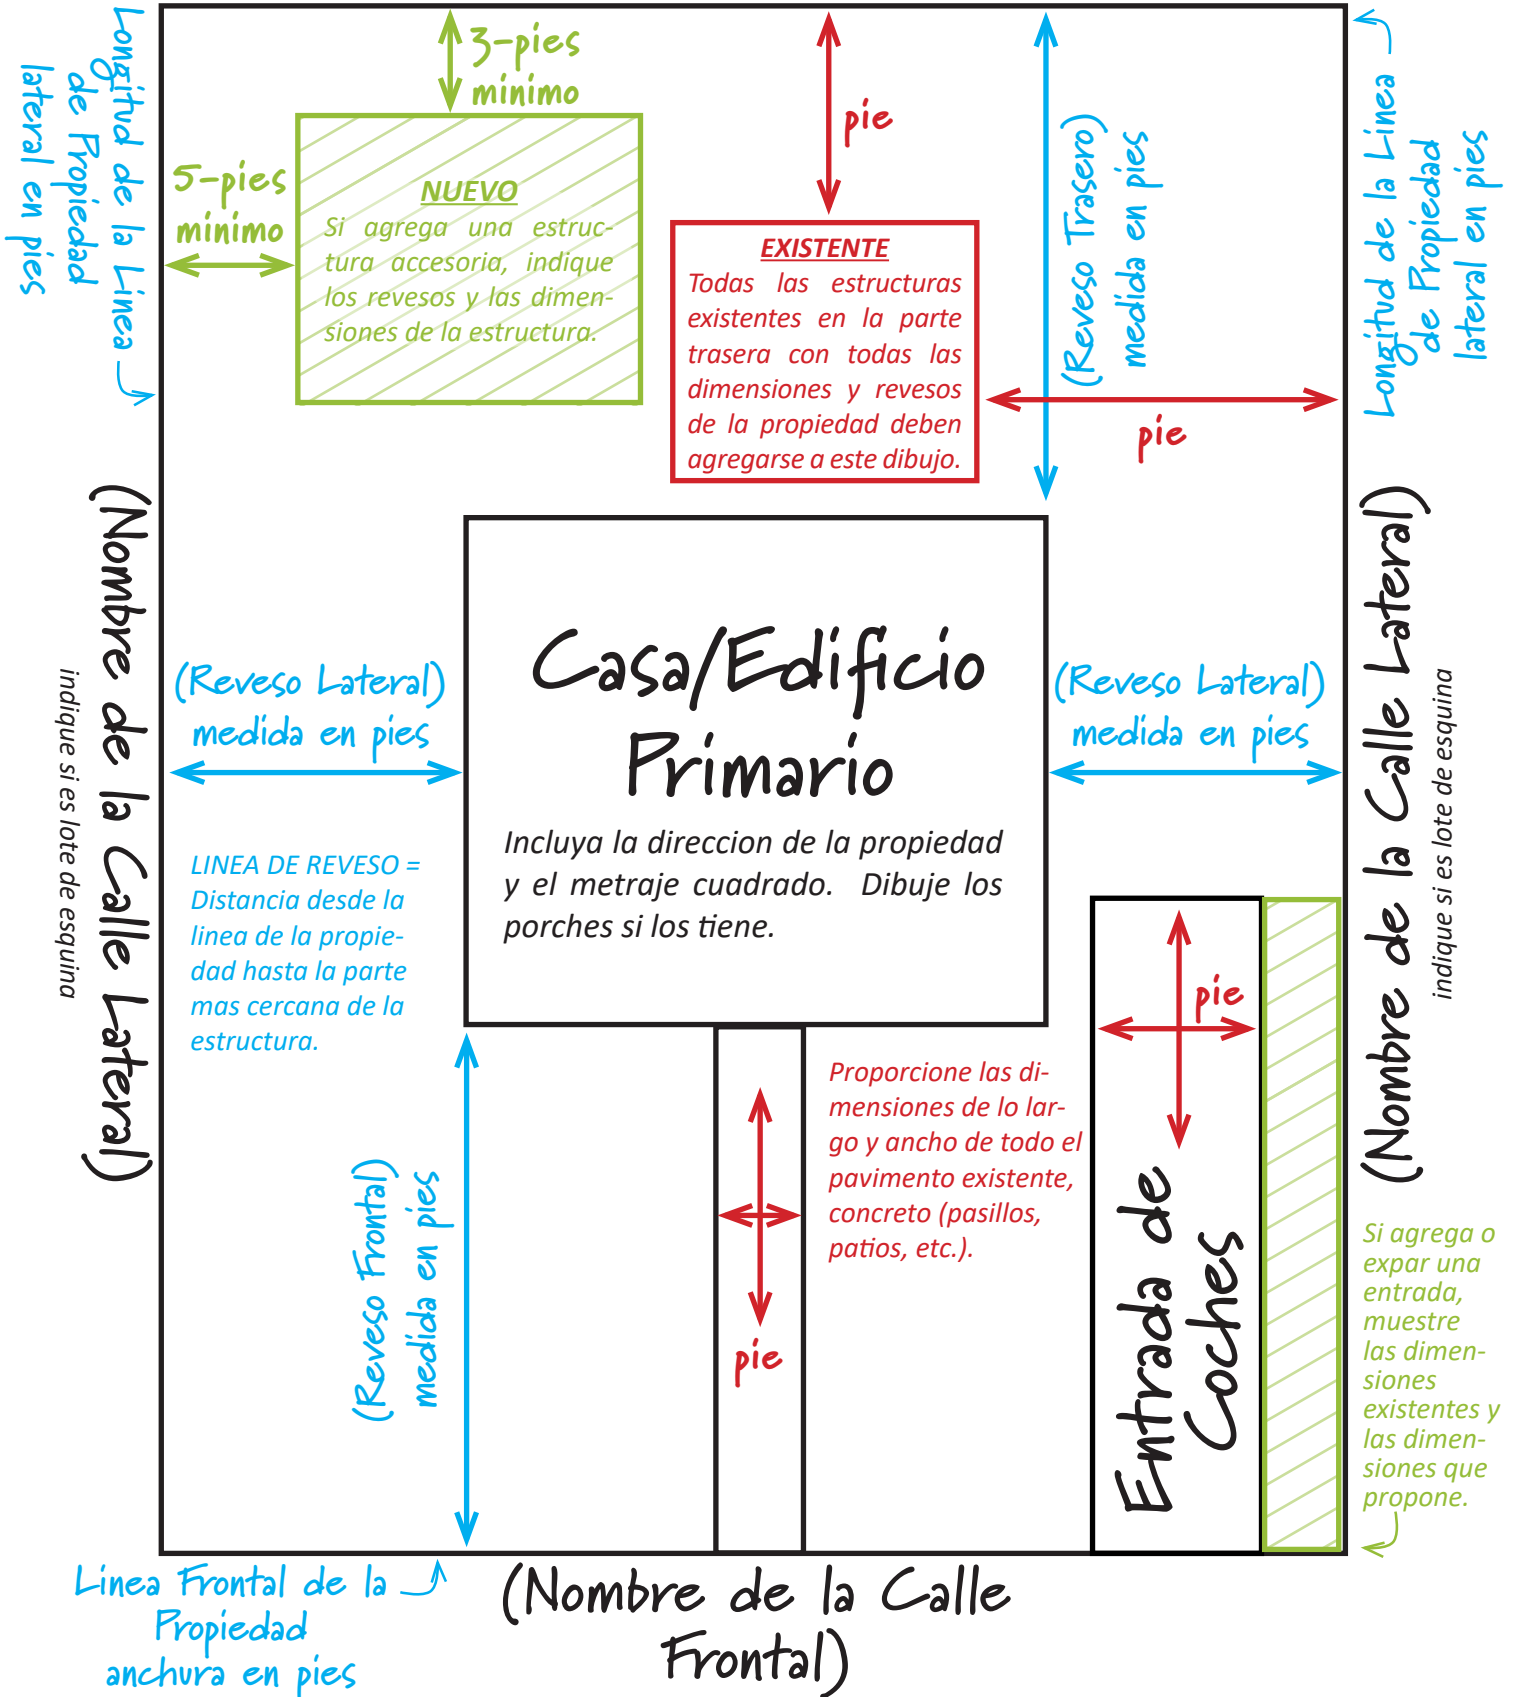 Longitud de la Línea
de Propiedad
lateral en pies
3-pies
mínimo
5-pies
mínimo
NUEVO
Si agrega una estruc-
tura accesoria, indique
los revesos y las dimen-
siones de la estructura.
pie
EXISTENTE
Todas las estructuras
existentes en la parte
trasera con todas las
dimensiones y revesos
de la propiedad deben
agregarse a este dibujo.
(Reveso Trasero)
medida en pies
pie
Longitud de la Línea
de Propiedad
lateral en pies
(Nombre de la Calle Lateral)
indique si es lote de esquina
(Reveso Lateral)
medida en pies
Casa/Edificio
Primario
Incluya la direccion de la propiedad
y el metraje cuadrado.  Dibuje los
porches si los tiene.
(Reveso Lateral)
medida en pies
(Nombre de la Calle Lateral)
indique si es lote de esquina
LINEA DE REVESO =
Distancia desde la
linea de la propie-
dad hasta la parte
mas cercana de la
estructura.
(Reveso Frontal)
medida en pies
pie
Proporcione las di-
mensiones de lo lar-
go y ancho de todo el
pavimento existente,
concreto (pasillos,
patios, etc.).
pie
Entrada de
Coches
Si agrega o
expar una
entrada,
muestre
las dimen-
siones
existentes y
las dimen-
siones que
propone.
Linea Frontal de la
Propiedad
anchura en pies
(Nombre de la Calle
Frontal)